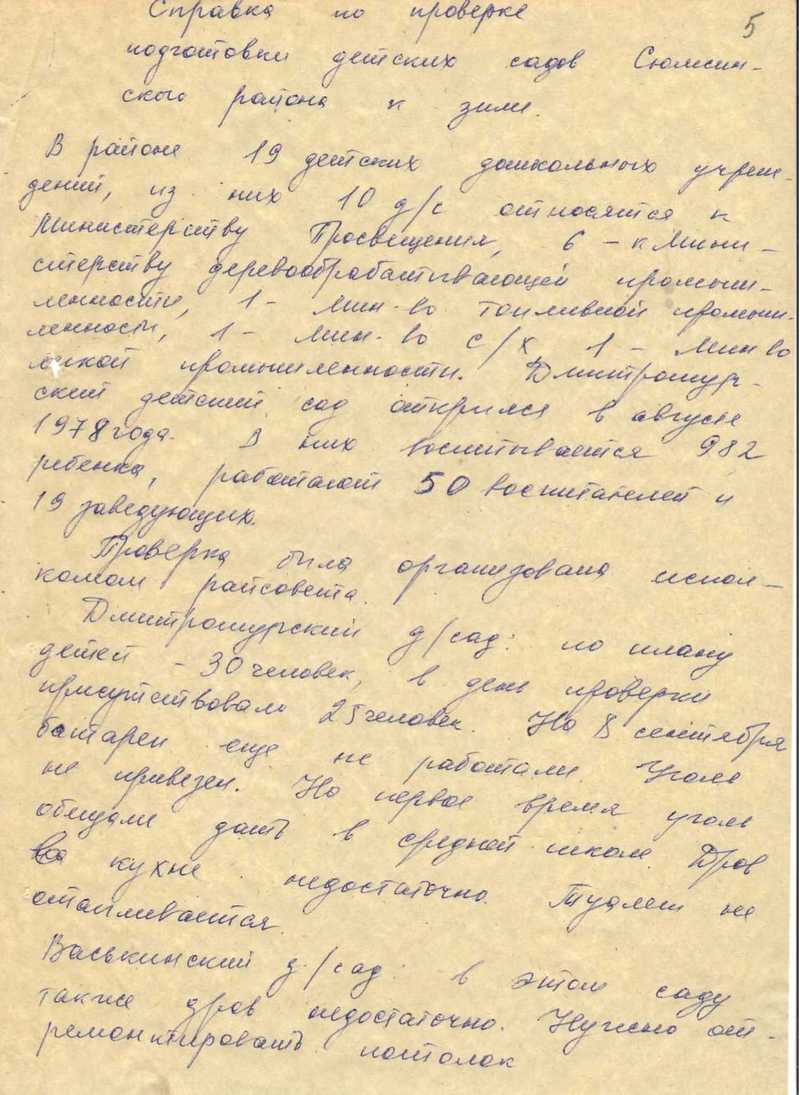 5
Справка по проверке
подготовки детских садов Сюмсин-
ского района к зиме.
В районе 19 детских дошкольных учреж-
дений, из них 10 д/с относятся к
Министерству Просвещения, 6 - к Мини-
стерству деревообрабатывающей промыш-
ленности, 1 - Мин-во топливной промыш-
ленности, 1 - Мин-во с/х 1 - Мин во
легкой промышленности. Дмитрошур-
ский детский сад открылся в августе
1978 года. В них воспитывается 982
ребенка, работают 50 воспитателей и
19 заведующих.
Проверка была организована испол-
комом райсовета.
Дмитрошурский д/сад: по плану
детей - 30 человек, в день проверки
присутствовали 25 человек. На 8 сентября
батареи еще не работали. Уголь
не привезен. На первое время уголь
обещали дать в средней школе. Дров
на кухне недостаточно. Туалет не
отапливается.
Васькинский д/сад: в этом саду
также дров недостаточно. Нужно от-
ремонтировать потолок